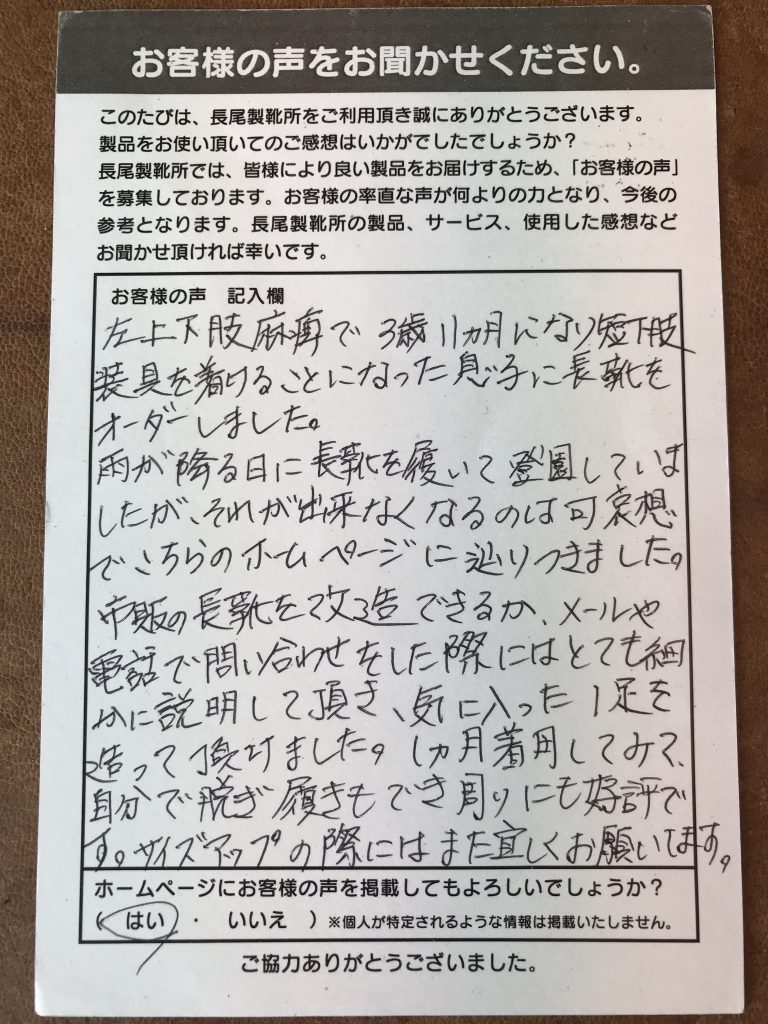 お客様の声をお聞かせください。
このたびは、長尾製靴所をご利用頂き誠にありがとうございます。
製品をお使い頂いてのご感想はいかがでしたでしょうか？
長尾製靴所では、皆様により良い製品をお届けするため、「お客様の声」
を募集しております。お客様の率直な声が何よりの力となり、今後の
参考となります。長尾製靴所の製品、サービス、使用した感想など
お聞かせ頂ければ幸いです。
お客様の声　記入欄
左上下肢麻痺で3歳11カ月になり短下肢
装具を着けることになった息子に長靴を
オーダーしました。
雨が降る日に長靴を履いて登園していま
したが、それが出来なくなるのは可哀想
でこちらのホームページに辿りつきました。
市販の長靴を改造できるか、メールや
電話で問い合わせをした際にはとても細
かに説明して頂き、気に入った1足を
造って頂けました。1カ月着用してみて、
自分で脱ぎ履きもでき周りにも好評で
す。サイズアップの際にはまた宜しくお願いします。
ホームページにお客様の声を掲載してもよろしいでしょうか？
（ はい ・ いいえ ）※個人が特定されるような情報は掲載いたしません。
ご協力ありがとうございました。